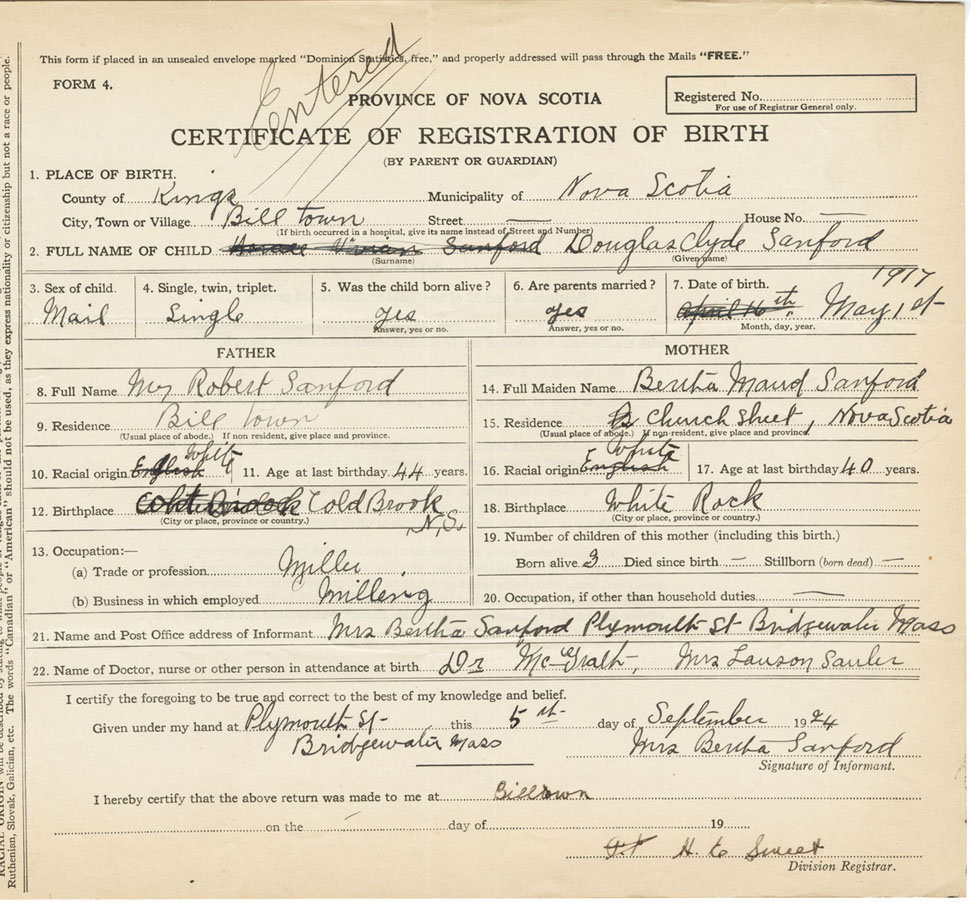 This form if placed in an unsealed envelope marked "Dominion Statistics, free," and properly addressed will pass through the Mails "FREE."
Entered
FORM 4.
PROVINCE OF NOVA SCOTIA
Registered No.
For use of Registrar General only.
CERTIFICATE OF REGISTRATION OF BIRTH
(BY PARENT OR GUARDIAN)
1. PLACE OF BIRTH.
County of Kings Municipality of Nova Scotia
City, Town or Village Bill town Street — House No. —
(If birth occurred in a hospital, give its name instead of Street and Number)
2. FULL NAME OF CHILD Horace Vivian Sanford Douglas Clyde Sanford
(Surname) (Given name)
3. Sex of child. 4. Single, twin, triplet. 5. Was the child born alive? 6. Are parents married? 7. Date of birth. 1917
Mail Single yes yes April 16th. May 1st
Answer, yes or no. Answer, yes or no. Month, day, year.
FATHER MOTHER
8. Full Name Mr Robert Sanford 14. Full Maiden Name Bertha Maud Sanford
9. Residence Bill town 15. Residence Church Street, Nova Scotia
(Usual place of abode.) If non resident, give place and province. (Usual place of abode.) If non-resident, give place and province.
10. Racial origin English White 11. Age at last birthday 44 years. 16. Racial origin English White 17. Age at last birthday 40 years.
12. Birthplace Cold Brook N.S. 18. Birthplace White Rock
(City or place, province or country.) (City or place, province or country.)
13. Occupation:— 19. Number of children of this mother (including this birth.)
(a) Trade or profession Miller Born alive 3 Died since birth — Stillborn (born dead) —
(b) Business in which employed Millenig 20. Occupation, if other than household duties —
21. Name and Post Office address of Informant Mrs Bertha Sanford Plymouth St Bridgewater Mass
22. Name of Doctor, nurse or other person in attendance at birth Dr McGrath, Mrs Lawson
I certify the foregoing to be true and correct to the best of my knowledge and belief.
Given under my hand at Plymouth St this 5 st day of September 1924
Bridgewater Mass Mrs Bertha Sanford
Signature of Informant.
I hereby certify that the above return was made to me at Billtown
on the day of 19
H. E Sweet
Division Registrar.
Ruthenian, Slovak, Galician, etc. The words "Canadian" or "American" should not be used, as they express nationality or citizenship but not a race or people.